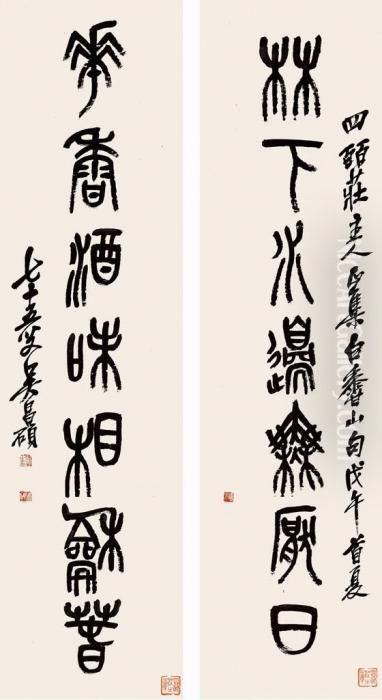 四頤莊主人正集白香山句戊午首夏
林下水邊無厭日
華香酒味相龢萅
七十五叟吳昌碩